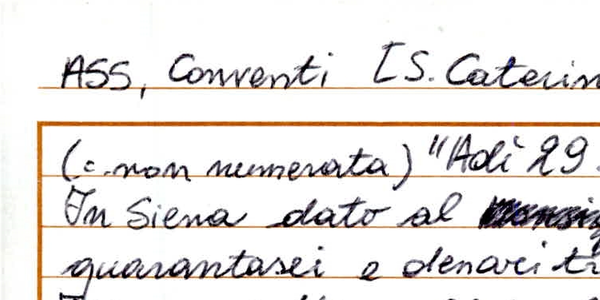 ASS, Conventi [S. Caterin
(c. non numerata) "Adì 29
In Siena dato al
quarantasei e denari tr